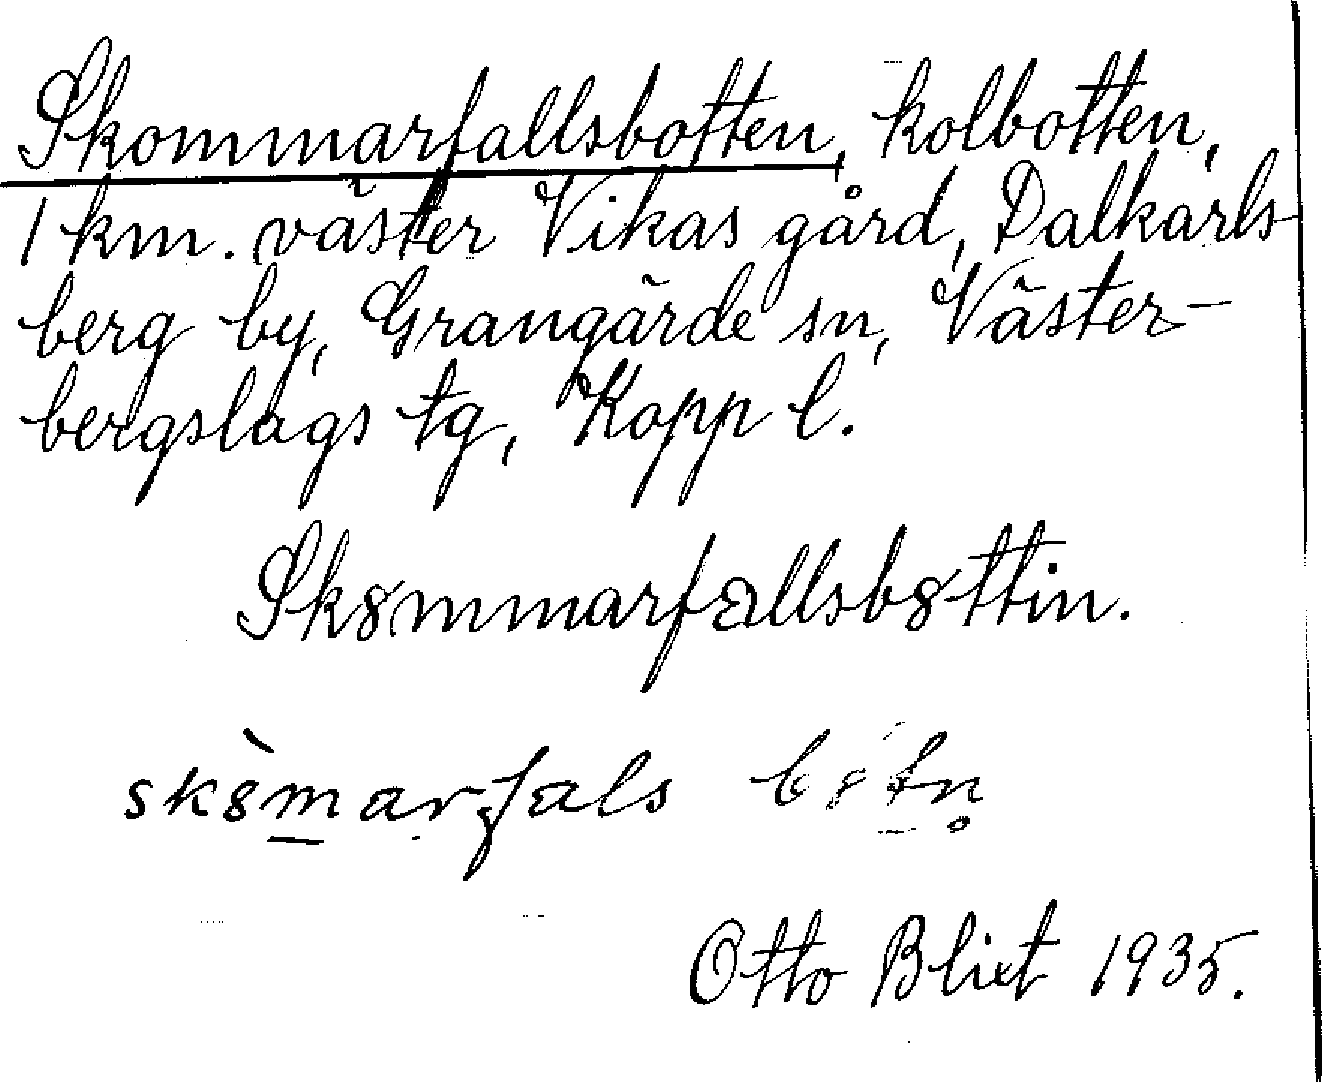 Skommarfallsbotten, kolbotten,
1 km. väster Vikas gård, Dalkarls-
berg by, Grangärde sn, Väster-
bergslags tg, Kopp l.
Sk8mmarfallsb8ttin.
sk8̀marfals b8tn̥
Otto Blixt 1935.